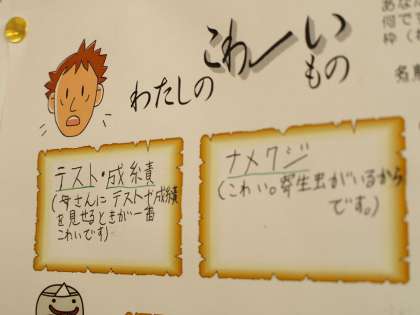 わたしの
こわーい
もの
あな
何で
枠(
名
テスト・成績
(母さんにテストや成績
を見せるときが一番
こわいです)
ナメクジ
(こわい。寄生虫がいるから
です。)